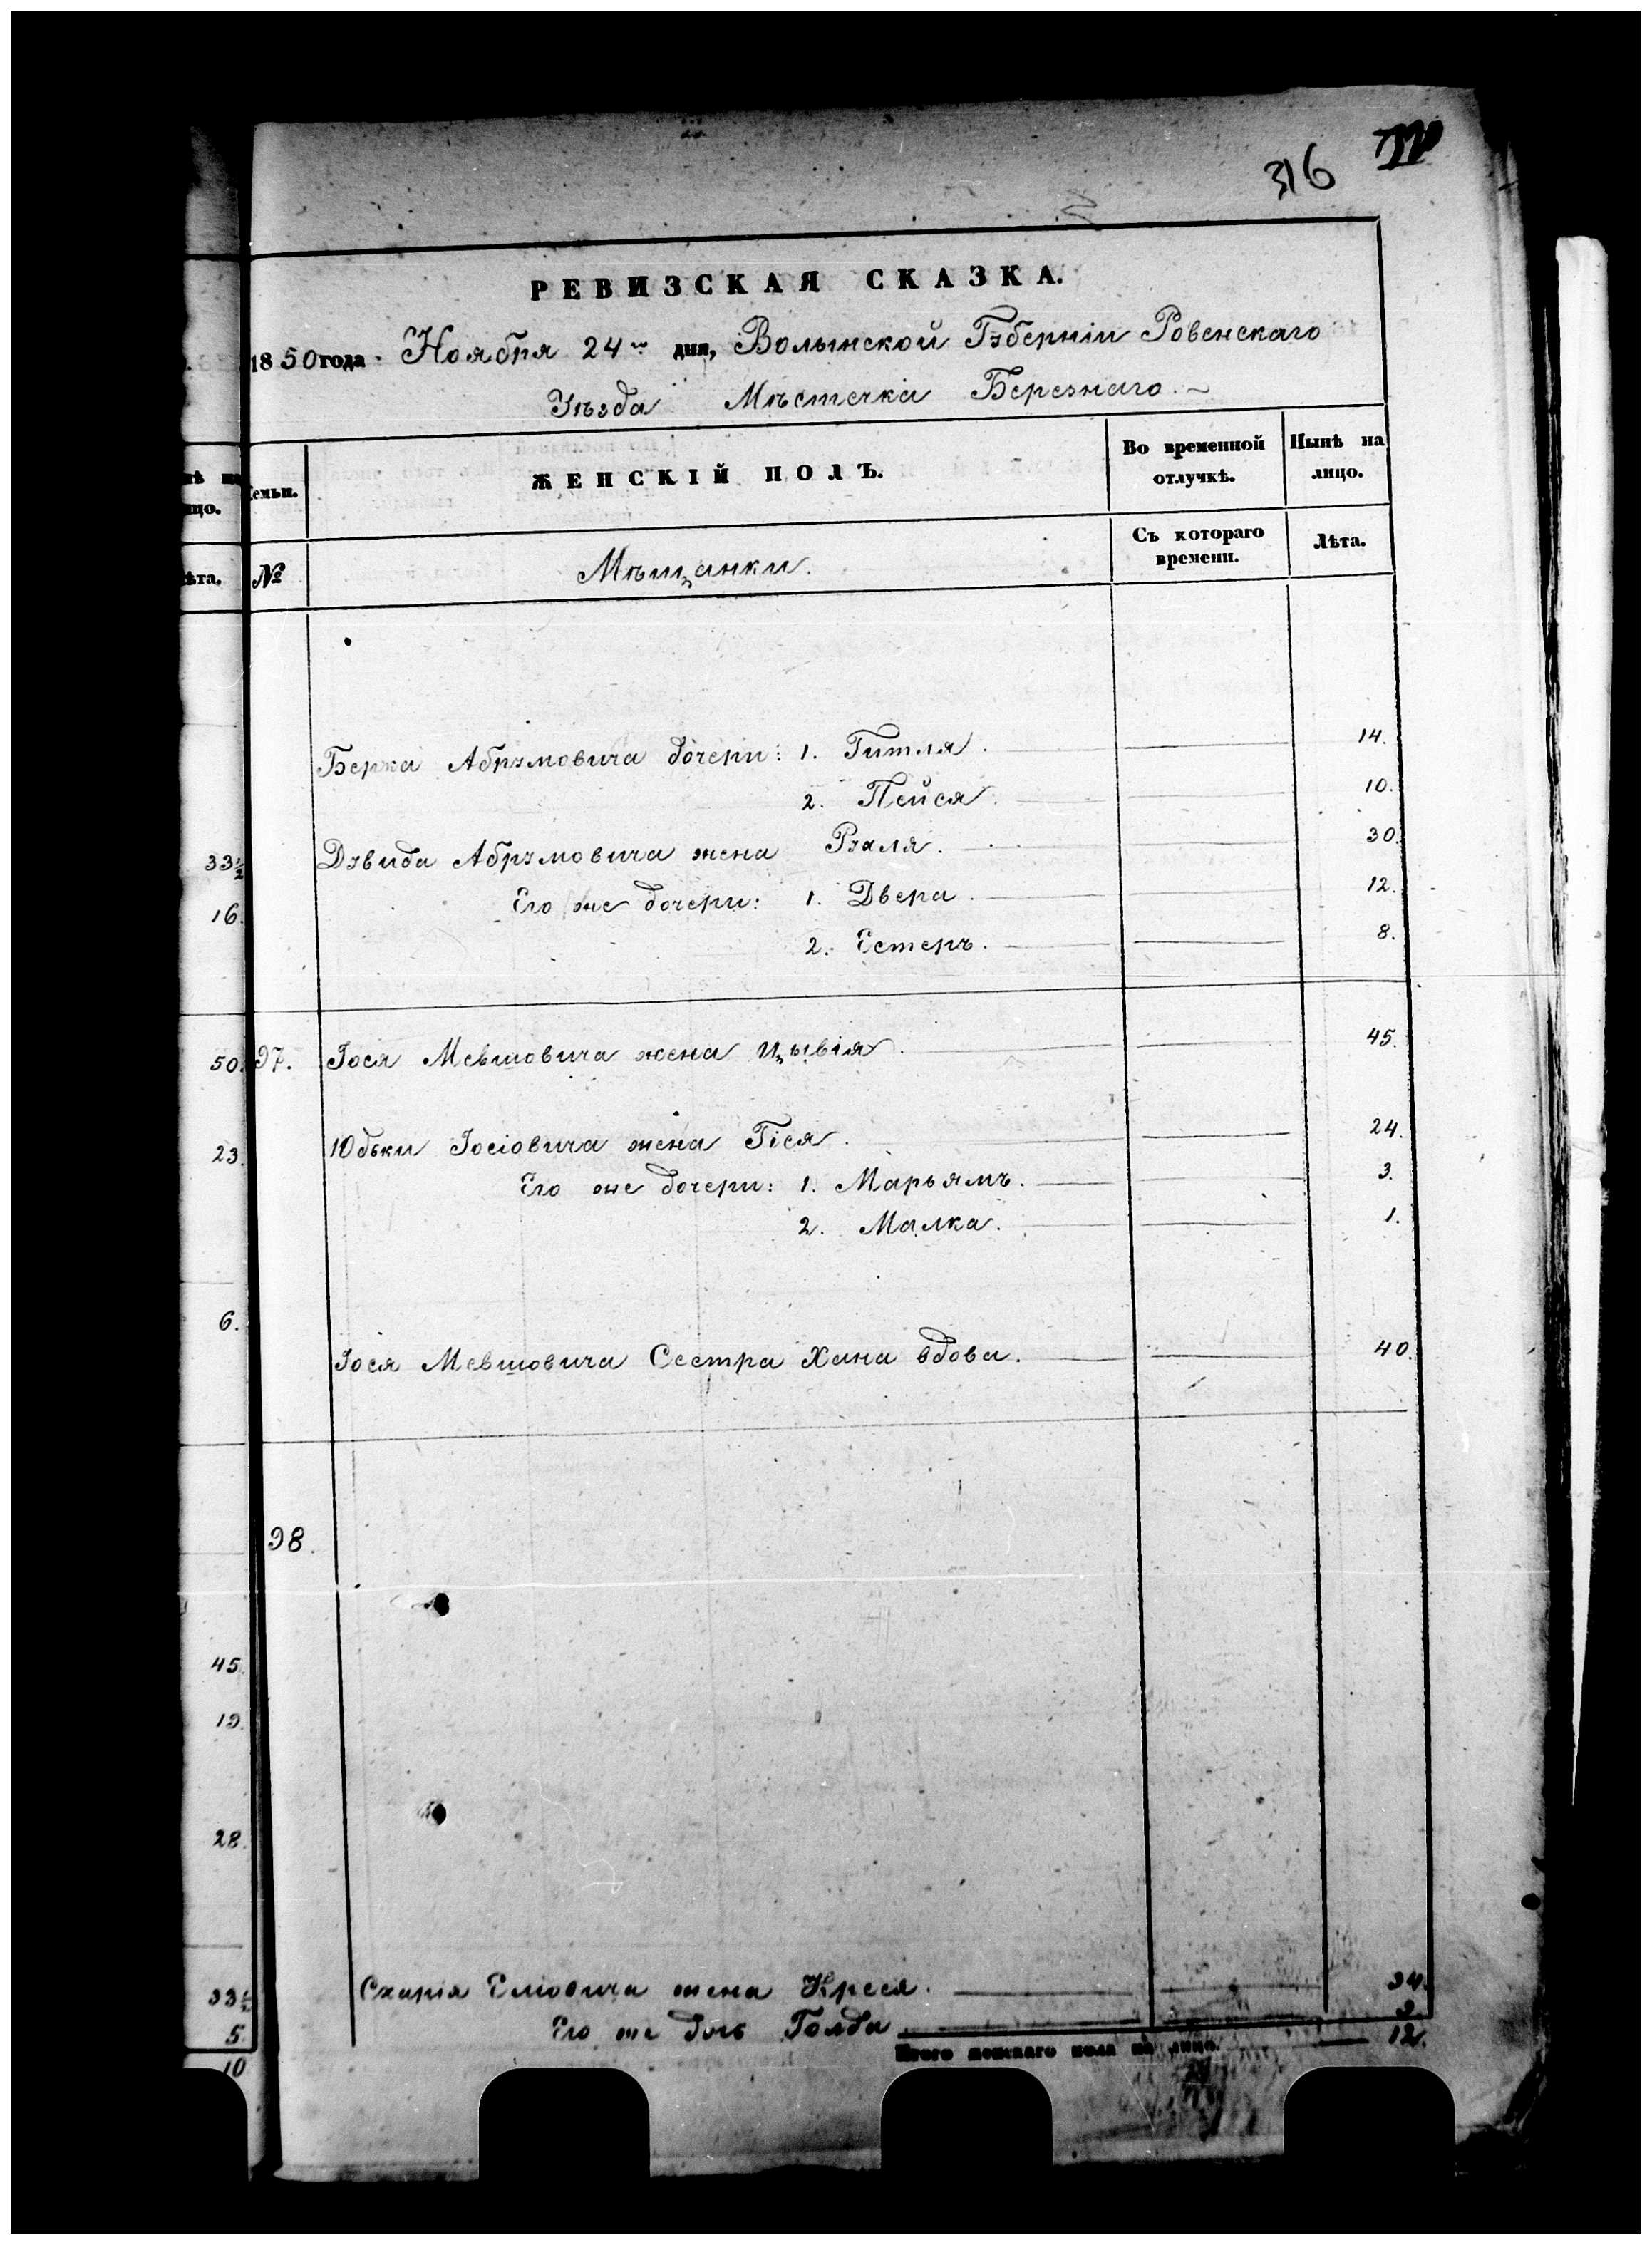 316
РЕВИЗСКАЯ СКАЗКА.
1850 года Ноября 24го дня, Волынской Губерніи Ровенскаго
Уѣзда Мѣстечка Березнаго.
Семьи. ЖЕНСКІЙ ПОЛЪ. Во временной отлучкѣ. Нынѣ на лицо.
№ Мѣщанки. Съ котораго времени. Лѣта.
Берка Абрумовича дочери: 1. Гитля. 14.
2. Пейся. 10.
33½ Дувида Абрумовича жена Рухля. 30.
16. Его же дочери: 1. Двера. 12.
2. Естеръ. 8.
50. 97. Іося Мевшовича жена Цывія. 45.
23. Юдьки Іосіовича жена Гіся. 24.
Его же дочери: 1. Марьямъ. 3.
2. Малка. 1.
6.
Іося Мевшовича Сестра Хана вдова. 40.
98.
45.
19.
28.
33½ Схарія Еліовича жена Креся. 34.
5. Его же дочь Голда
10 Итого женскаго пола на лицо. 12.